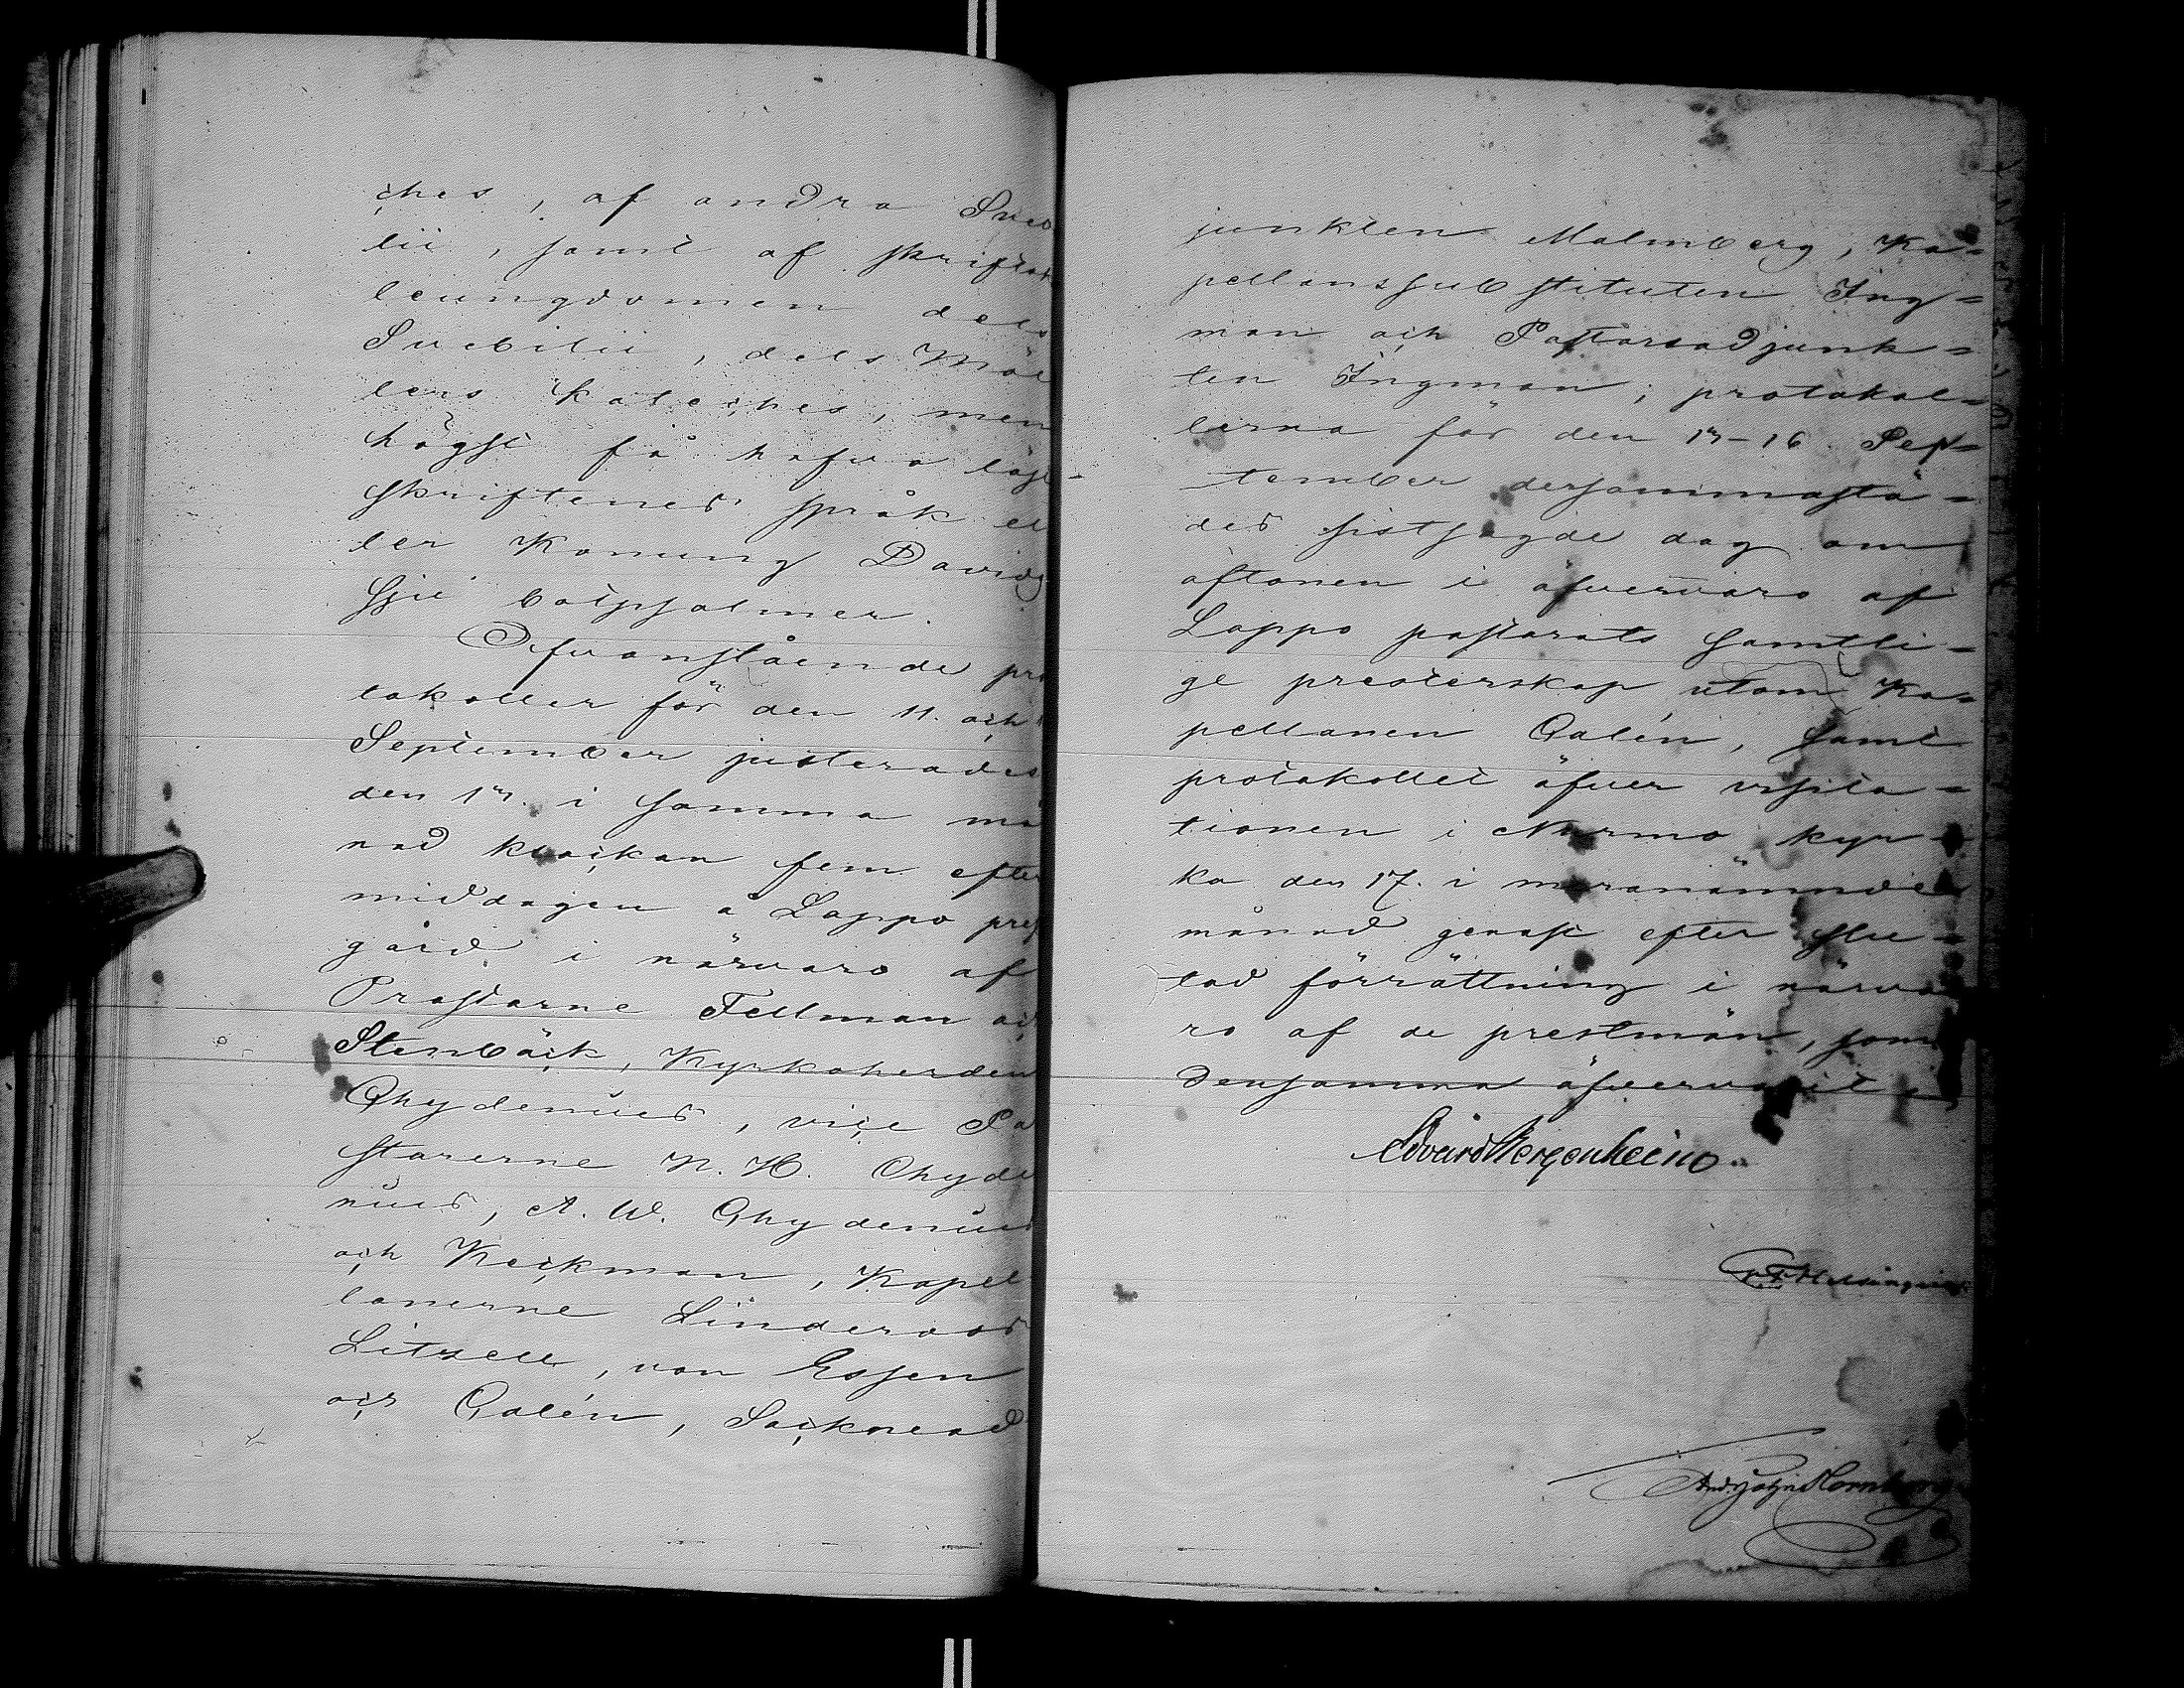 ches, af andra Sveb
lii, samt af skriftsko
leungdomen dels
Svebilii, dels Möl
lers kateches, men
högst få hafva läst
skriftenes språk el
ler Konung Davids
sju botpsalmer.
Ofvanstående pro
tokoller för den 11. och
September justerades
den 13. i samma må
nad klockan fem efter
middagen å Lappo prest
gård i närvaro af
Prostarne Fellman och
Stenbäck, Kyrkoherden
Chydenius, vice Pa
storerne N. H. Chyde
nius, A. W. Chydenius
och Keckman, Kapel
lanerne Linderoos
Litzell, von Essen
och Galén, Sockne ad
junkten Malmberg, Ka-
pellanssubstituten Ing-
man och Pastorsadjunk-
ten Ingman; protokol-
lerna för den 13-16. Sep-
tember dersammastä-
des sistsagde dag om
aftonen i öfvervaro af
Lappo pastorats samtli-
ge presterskap utom Ka-
pellanen Galén, samt
protokollet öfver visita-
tionen i Nurmo kyr-
ka den 17. i meranämnde
månad genast efter slu-
tad förrättning i närva
ro af de prestmän, som
densamma öfvervarit;
Edvard Bergenheim.
And. Joh. Hornborg